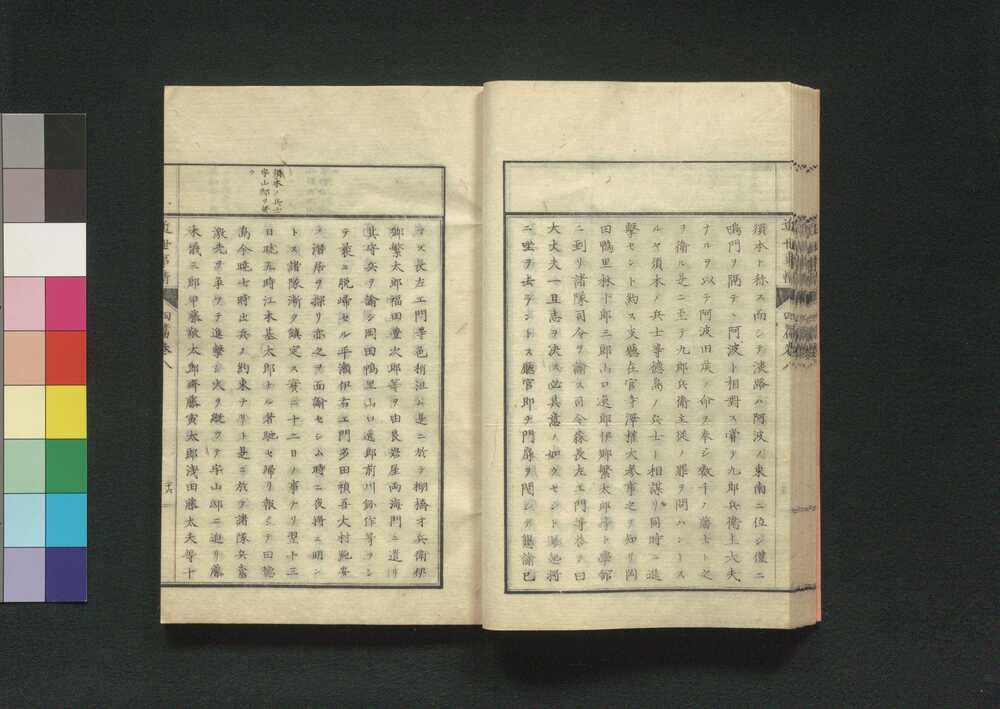 須本ト称ス而シテ淡路ハ阿波ノ東南ニ位シ僅ニ
鳴門ヲ隔テヽ阿波ト相對ス嘗テ九郎兵衛士大夫
ナルヲ以テ阿波田　ノ命ヲ奉シ数千ノ藩士ト之
ヲ衛ル是ニ至テ九郎兵衛主従ノ罪ヲ問ハントス
ルヤ須本ノ兵士等徳島ノ兵士ト相謀リ同時ニ進
撃セント約ス支廳在官寺澤権大参事之ヲ知リ岡
田鴨里林十郎三郎山口　郎　繁太郎等ト學館
ニ到リ諸隊司令ヲ諭ス司令　長左エ門等答テ曰
大丈夫一旦志ヲ決ス必其意ノ如クセント　起將
ニ坐ヲ去ラントス廳官即チ門扉ヲ閉シテ懇諭已
マス長左エ門等色稍沮ム是ニ於テ棚橋才兵衛
郷繁太郎福田豊次郎等ヲ由良岩屋両海門ニ遣リ
其守兵ヲ諭シ岡田鴨里山口　郎前川　作等ヲシ
テ　ニ脱帰セル平瀬伊右エ門多田禎吾大村純安
ノ潜居ヲ探リ亦之ヲ面諭セシム時ニ夜将ニ明ン
トス諸隊漸ク鎮定ス實ニ十二日ノ事ナリ翌十三
日暁五時江本基太郎ナル者馳セ歸リ報シテ曰徳
島今暁七時出兵ノ約束ナリト是ニ於テ諸隊兵奮
激先ヲ争フテ進撃シ火ヲ縦ツテ宇山邸ニ迫リ藤
本儀三郎甲藤敬太郎齊藤寅太郎浅田藤太夫等十
須本ノ兵士
宇山邸ヲ撃
ツ
近世事情
四篇巻八
十六